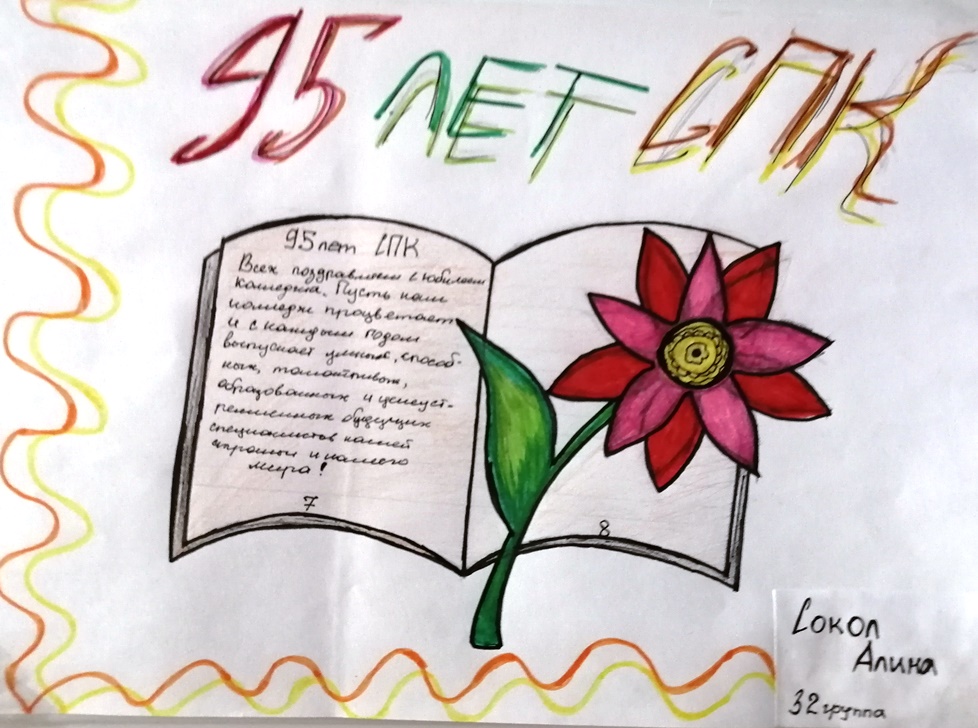 95 ЛЕТ СПК
95 лет СПК
Всех поздравляем с юбилеем
колледжа. Пусть наш
колледж процветает
и с каждым годом
выпускает умных, способ-
ных, талантливых,
образованных и целеуст-
ремленных будущих
специалистов нашей
страны и нашего
мира!
7
8
Сокол
Алина
32 группа